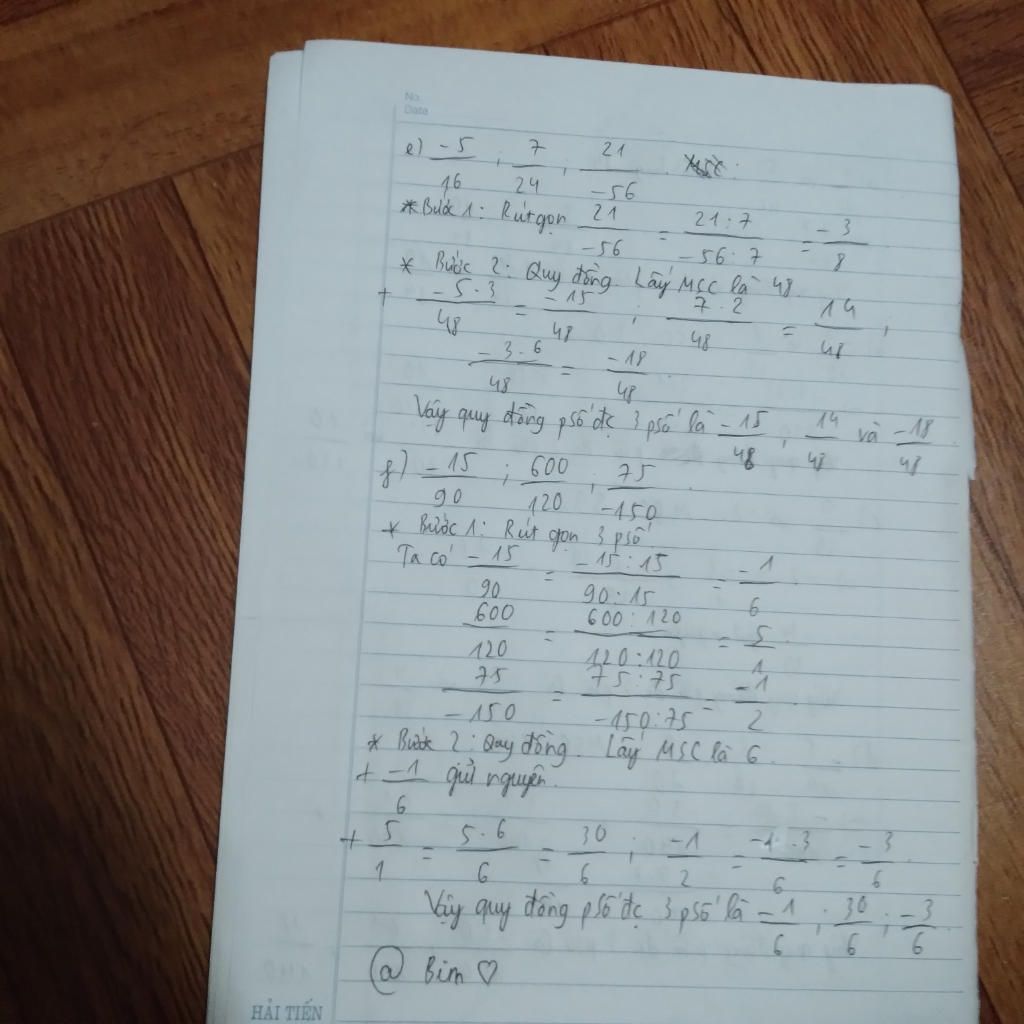 No.
Date
e) -5/16 ; 7/24 ; 21/-56.
* Bước 1: Rút gọn 21/-56 = 21:7/-56:7 = -3/8
* Bước 2: Quy đồng. Lấy MSC là 48.
+ -5·3/48 = -15/48 ; 7·2/48 = 14/48 ;
-3·6/48 = -18/48.
Vậy quy đồng psố đc 3 psố là -15/48 ; 14/48 và -18/48.
f) -15/90 ; 600/120 ; 75/-150.
* Bước 1: Rút gọn 3 psố
Ta có -15/90 = -15:15/90:15 = -1/6.
600/120 = 600:120/120:120 = 5/1.
75/-150 = 75:75/-150:75 = -1/2
* Bước 2: Quy đồng. Lấy MSC là 6.
+ -1/6 giữ nguyên.
+ 5/1 = 5·6/6 = 30/6 ; -1/2 = -1·3/6 = -3/6.
Vậy quy đồng psố đc 3 psố là -1/6 ; 30/6 ; -3/6.
@ Bim ♡
HẢI TIẾN